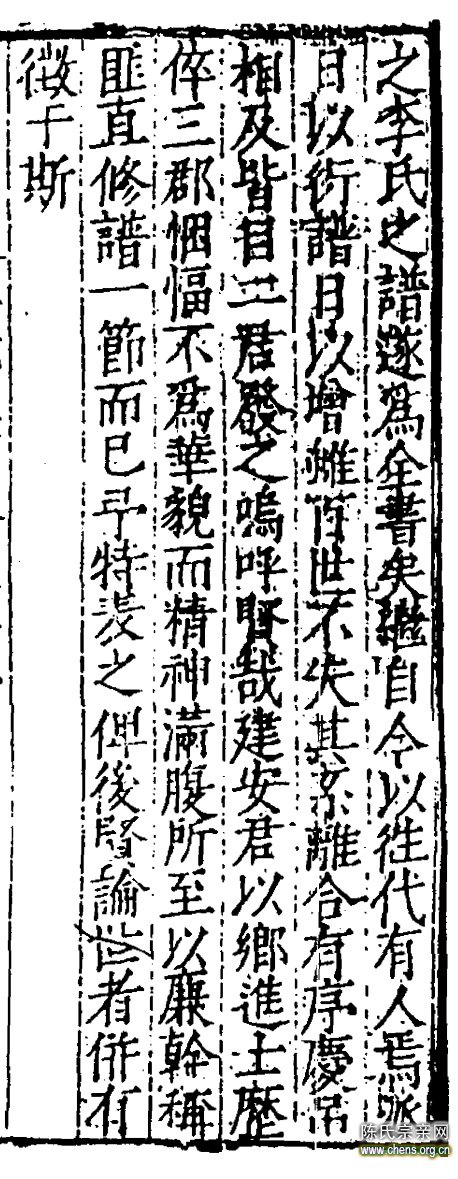 之李氏之譜遂為全書矣繼自今以徃代有人焉派
日以衍譜日以增雖百世不失其系離合有序慶吊
相及皆自二君發之嗚呼賢哉建安君以鄉進士歷
倅三郡悃愊不爲華貌而精神滿腹所至以廉幹稱
匪直修譜一節而已予特表之俾後賢論世者併有
徵于斯
陈氏宗亲网
www.chens.org.cn